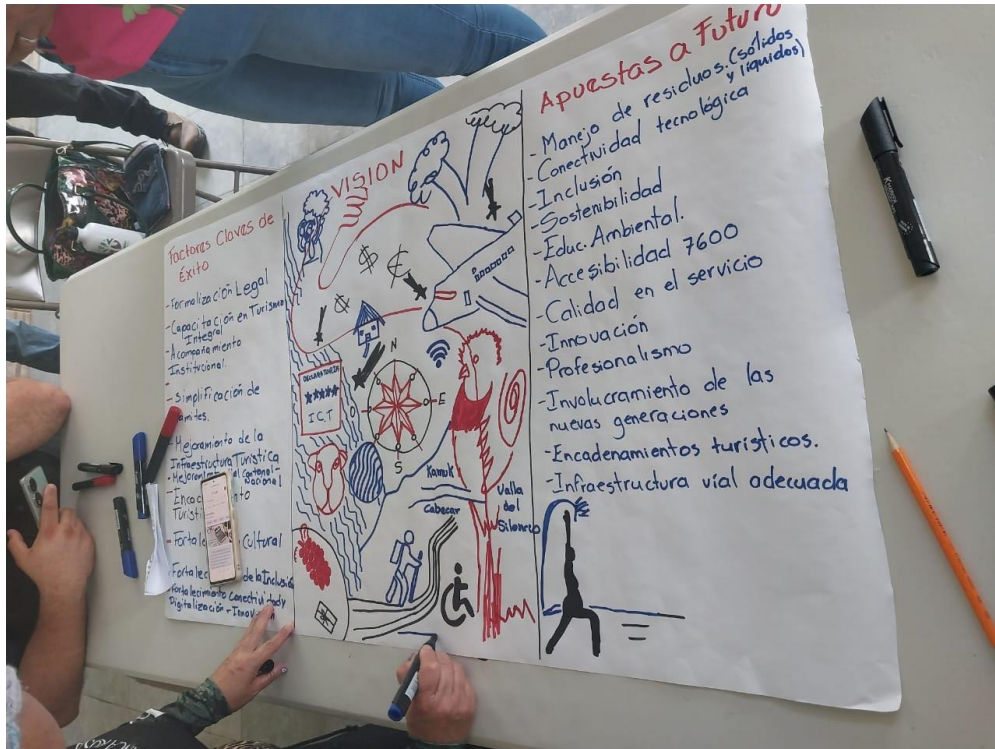 Factores Claves de
Éxito
-Formalización Legal
-Capacitación en Turismo
Integral
-Acompañamiento
Institucional.
-Simplificación de
-Mejoramiento de la
Infraestructura Turística
-Fortalecimiento conectividad y
Digitalización -
VISION
$
₡
$
N
E
S
O
DECLARATORIA
I C T
Kamuk
Cabecar
Valle
del
Silencio
Apuestas a Futuro
-Manejo de residuos.(sólidos
y líquidos)
-Conectividad tecnológica
-Inclusión
-Sostenibilidad
-Educ. Ambiental.
-Accesibilidad 7600
-Calidad en el servicio
-Innovación
-Profesionalismo
-Involucramiento de las
nuevas generaciones
-Encadenamientos turísticos.
-Infraestructura vial adecuada